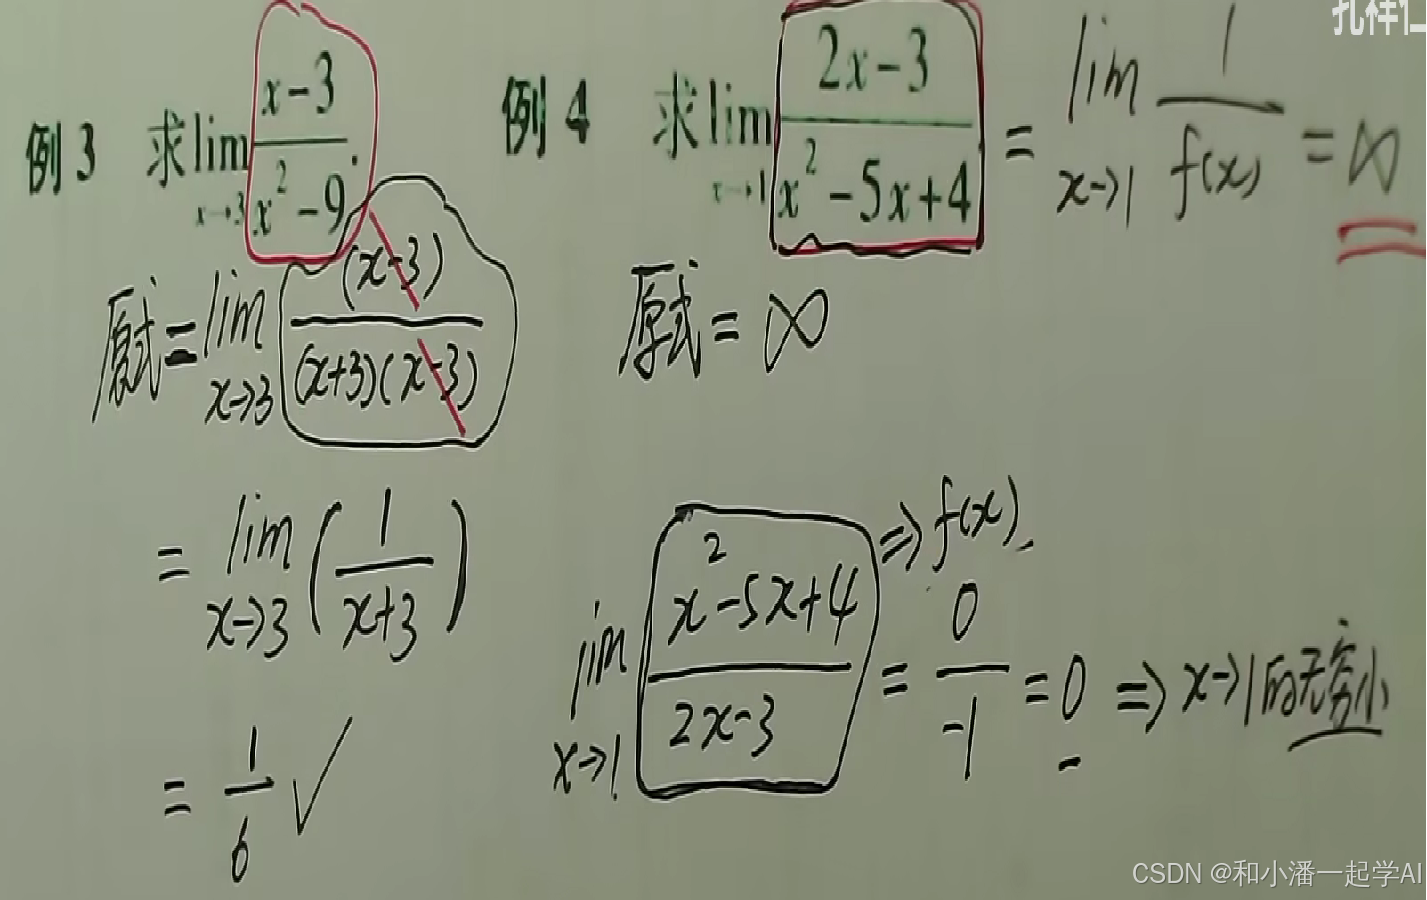 扎样仁
例3 求lim x→3 (x-3)/(x²-9).
原式=lim x→3 (x-3)/((x+3)(x-3))
=lim x→3 (1/(x+3))
=1/6 ✓
例4 求lim x→1 (2x-3)/(x²-5x+4) = lim x→1 1/f(x) = ∞
原式=∞
lim x→1 (x²-5x+4)/(2x-3) ⇒ f(x) = 0/-1 = 0 ⇒ x→1的无穷小
CSDN @和小潘一起学AI